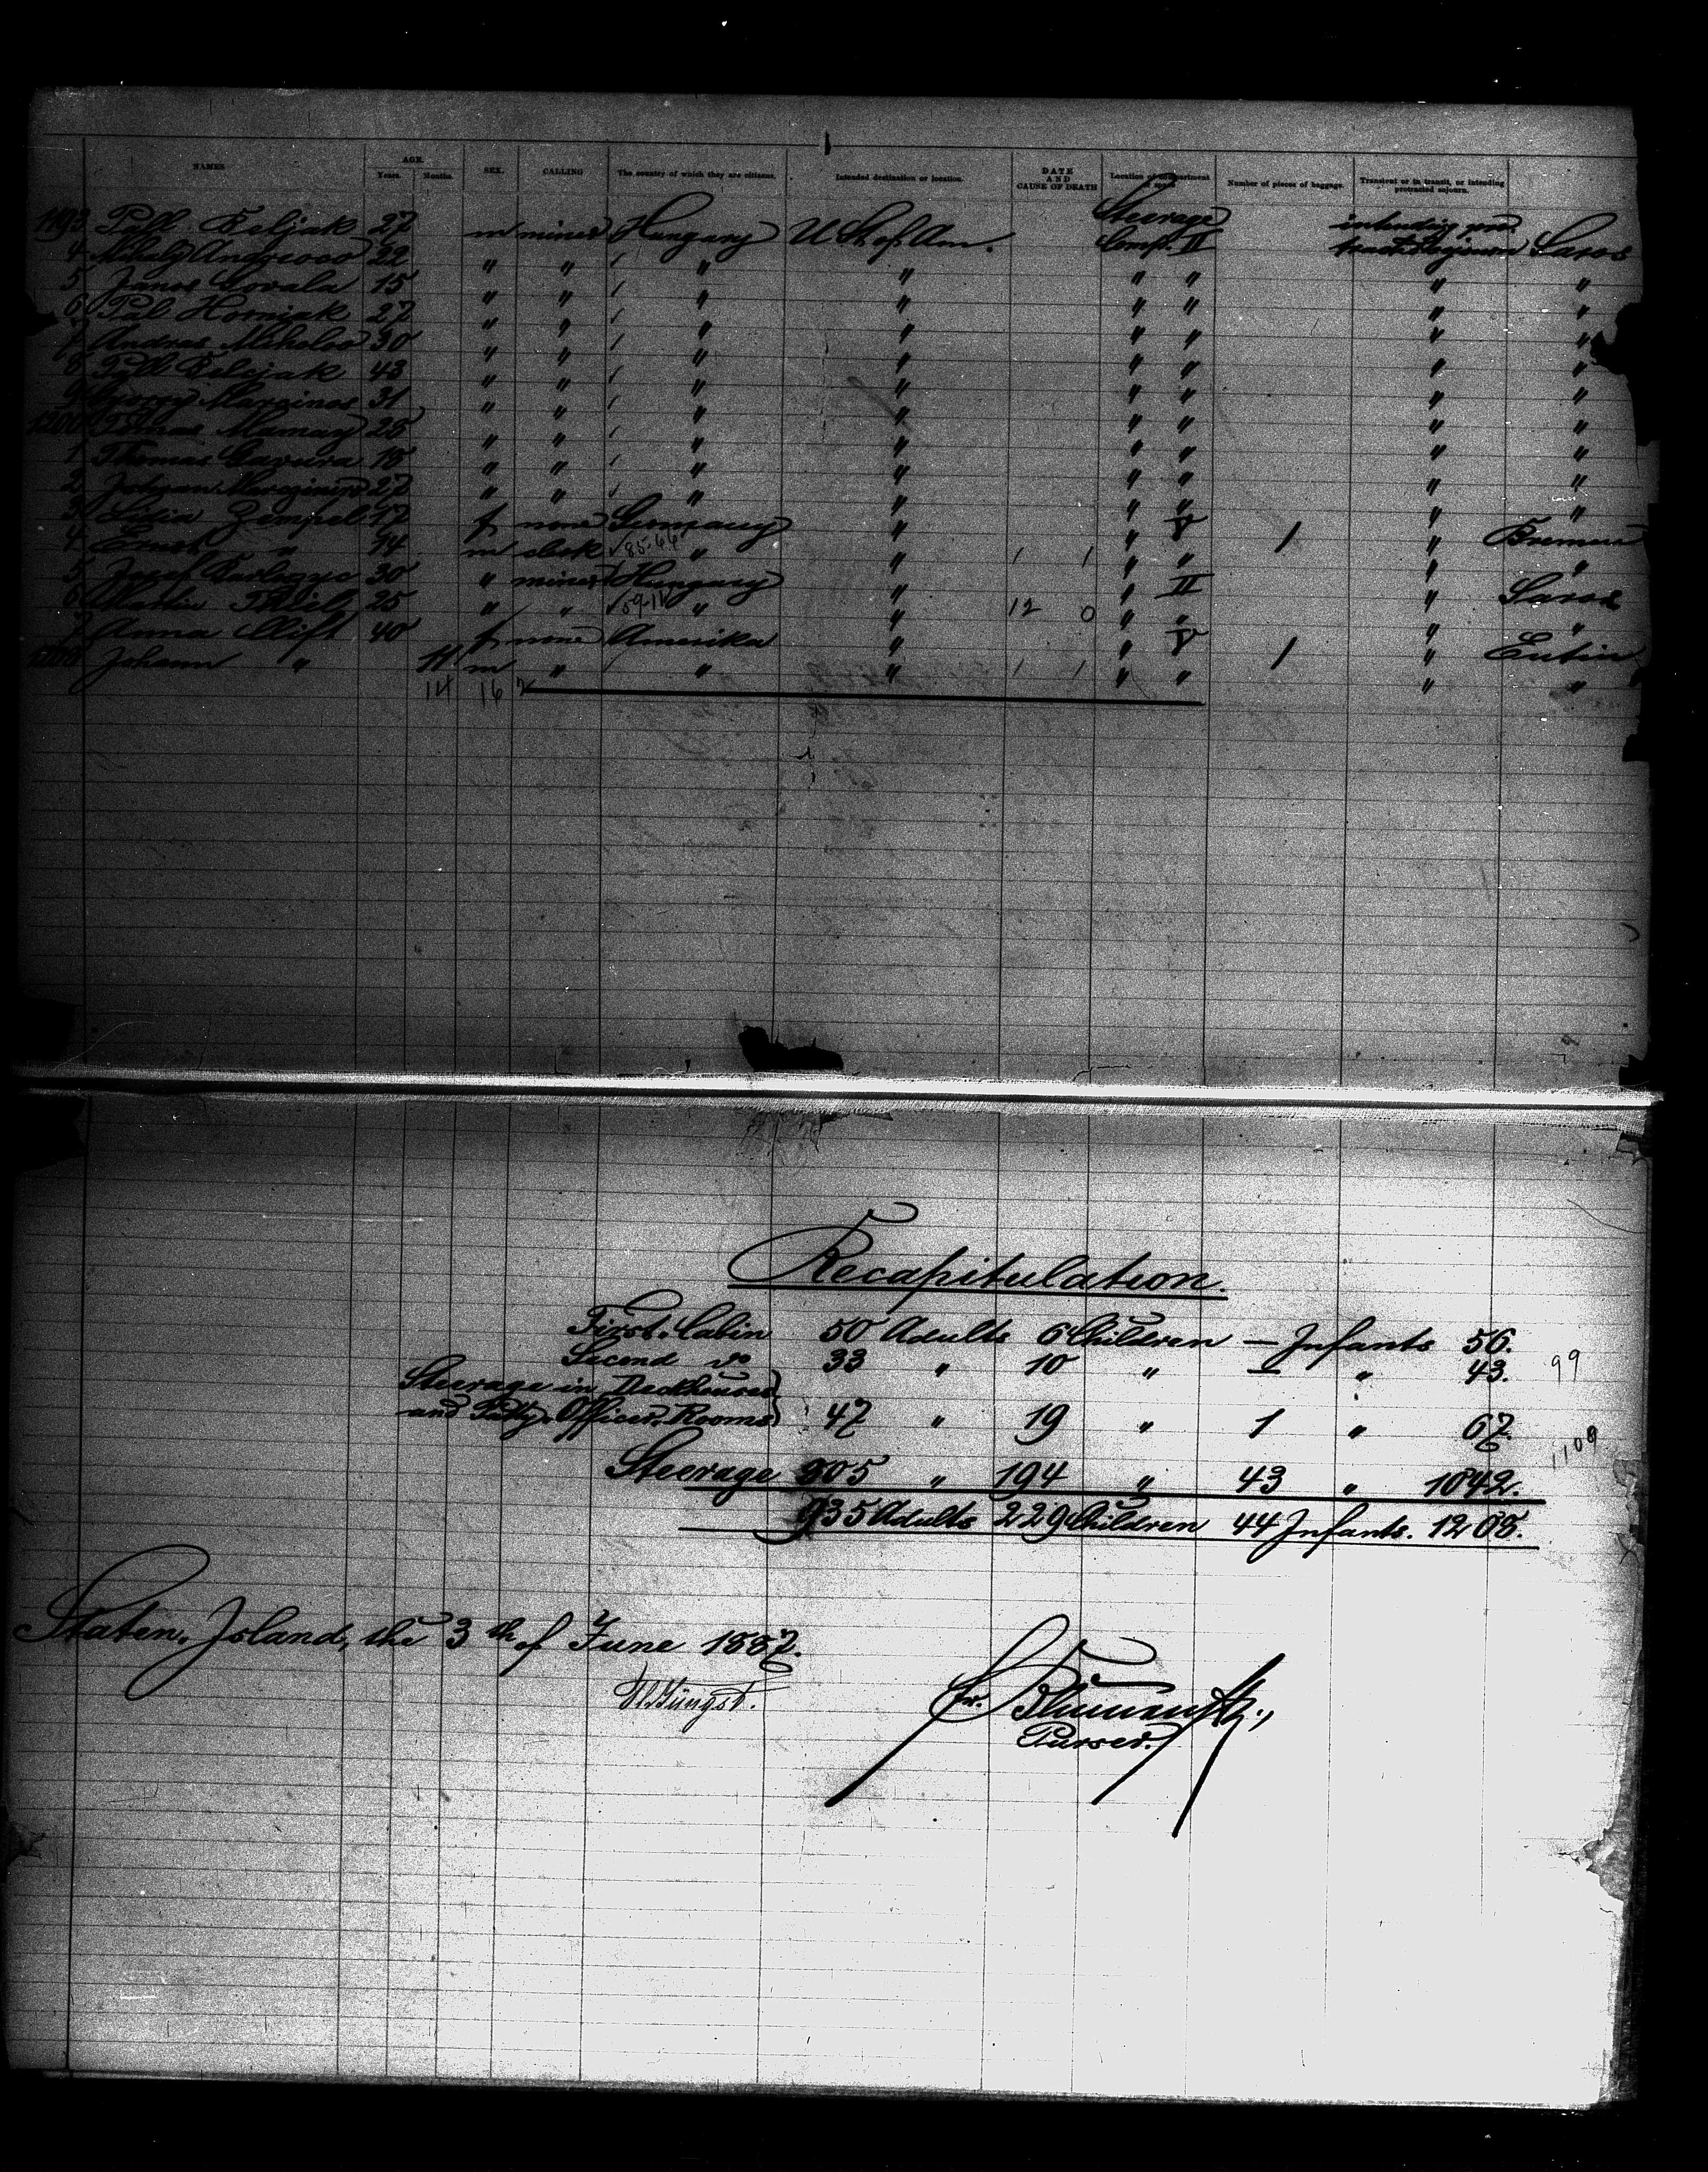 NAMES AGE. Years. Months. SEX. CALLING The country of which they are citizens. Intended destination or location. DATE AND CAUSE OF DEATH Location of compartment Number of pieces of baggage. Transient or in transit, or intending protracted sojourn.
1193 Pall Feljak 27 m miner Hungary U. St. of Am. Steerage Compt. II intending pro tracted sojourn Saros
4 Mihaly 22 " " " " " " " "
5 Janos 15 " " " " " " " "
6 Pal Horniak 27 " " " " " " " "
7 Andras Mihalos 30 " " " " " " " "
8 Pall Feljak 43 " " " " " " " "
9 31 " " " " " " " "
1200 Mamay 28 " " " " " " " "
1 Thomas Gavura 18 " " " " " " " "
2 27 " " " " " " " "
3 Zempel 17 f none Germany " " V 1 " Bremen
4 Ernst " 14 m clerk 85-66 " " 1 1 " " " "
5 Josef 30 " miner Hungary " " II " Saros
6 Martin 25 " " 59-14 " " 12 0 " " " "
7 Anna Clift 40 f none Amerika " " V 1 " Eutin
1208 Johann " 11 m " " " 1 1 " " " "
14 16 2
Recapitulation.
First Cabin 50 Adults 6 Children — Infants 56.
Second do 33 " 10 " — " 43. 99
Steerage in Deckhouses
and Petty Officers Rooms 47 " 19 " 1 " 67.
1109
Steerage 805 " 194 " 43 " 1042.
935 Adults 229 Children 44 Infants. 1208.
Staten Island, the 3th of June 1887.
Purser.